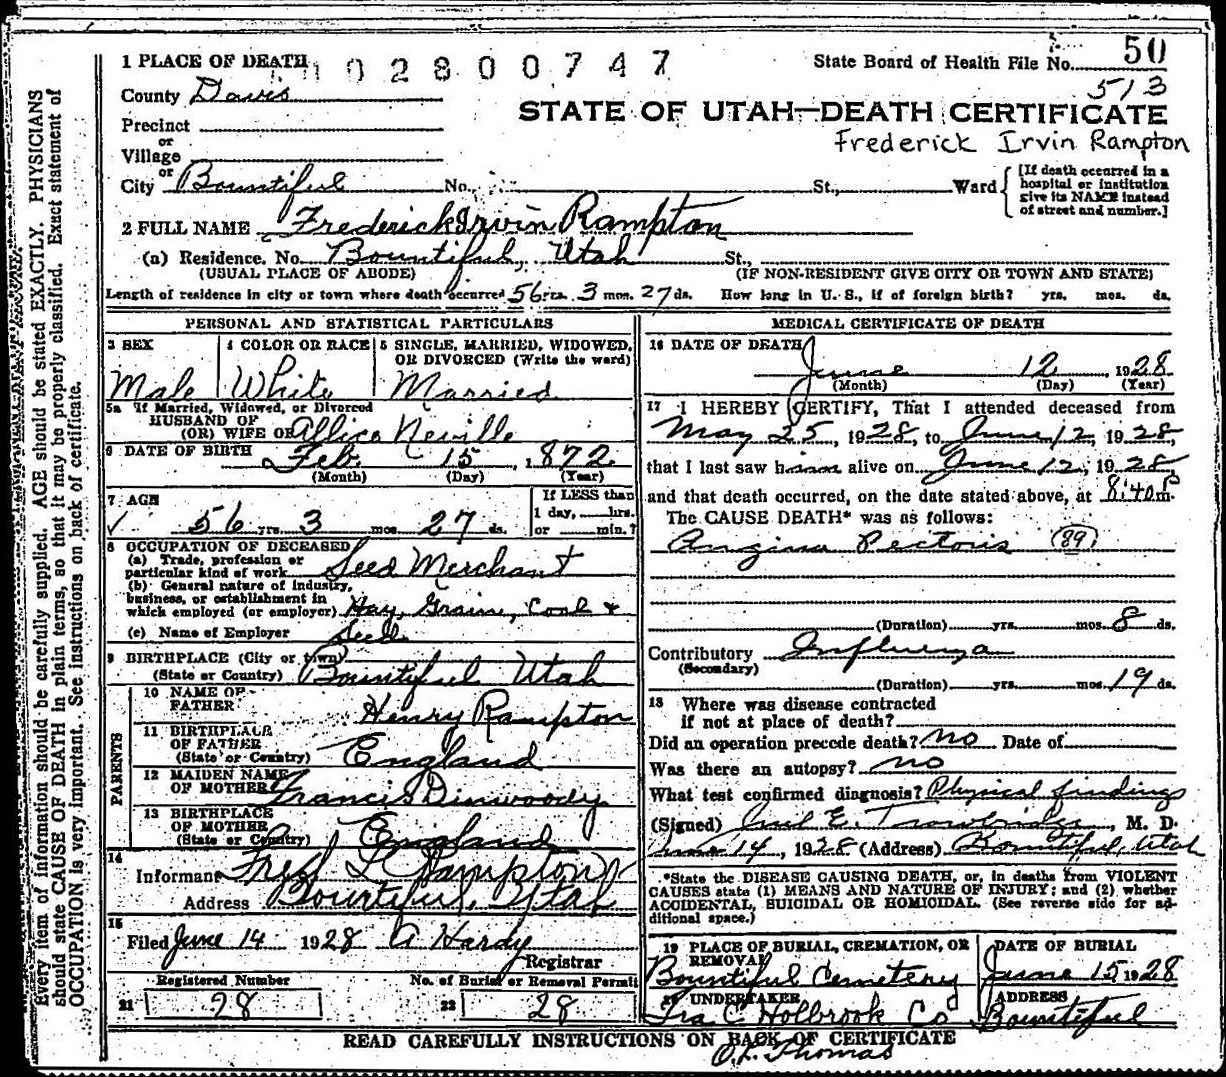 50
State Board of Health File No.
1 PLACE OF DEATH
02800747
513
County Davis
STATE OF UTAH—DEATH CERTIFICATE
Frederick Irvin Rampton
Precinct
or
Village
or
City Bountiful No. St., Ward
[If death occurred in a
hospital or institution
give its NAME instead
of street and number.]
2 FULL NAME Frederick Irvin Rampton
(a) Residence. No. Bountiful, Utah St.,
(USUAL PLACE OF ABODE) (IF NON-RESIDENT GIVE CITY OR TOWN AND STATE)
Length of residence in city or town where death occurred 56 yrs. 3 mos. 27 ds. How long in U. S., if of foreign birth? yrs. mos. ds.
PERSONAL AND STATISTICAL PARTICULARS
3 SEX
Male
4 COLOR OR RACE
White
5 SINGLE, MARRIED, WIDOWED,
OR DIVORCED (Write the word)
Married
5a If Married, Widowed, or Divorced
HUSBAND OF
(OR) WIFE OR Allice Neville
6 DATE OF BIRTH Feb. 15, 1872
(Month) (Day) (Year)
7 AGE
56 yrs. 3 mos. 27 ds.
If LESS than
1 day, hrs.
or min.?
8 OCCUPATION OF DECEASED
(a) Trade, profession or
particular kind of work Seed Merchant
(b) General nature of industry,
business, or establishment in
which employed (or employer) Hay, Grain, Coal &
(c) Name of Employer Seed
9 BIRTHPLACE (City or town)
(State or Country) Bountiful Utah
PARENTS
10 NAME OF
FATHER Henry Rampton
11 BIRTHPLACE
OF FATHER
(State or Country) England
12 MAIDEN NAME
OF MOTHER Francis Dinwoody
13 BIRTHPLACE
OF MOTHER
(State or Country) England
14
Informant L Rampton
Address Bountiful, Utah
15
Filed June 14 1928 A Hardy
Registrar
Registered Number No. of Burial or Removal Permit
21 28 22 28
MEDICAL CERTIFICATE OF DEATH
16 DATE OF DEATH
June 12, 1928
(Month) (Day) (Year)
17 I HEREBY CERTIFY, That I attended deceased from
May 25, 1928, to June 12, 1928,
that I last saw him alive on June 12, 1928
and that death occurred, on the date stated above, at 8:40 P m.
The CAUSE DEATH* was as follows:
Angina Pectoris (89)
(Duration) yrs. mos. 8 ds.
Contributory Influenza
(Secondary)
(Duration) yrs. mos. 19 ds.
18 Where was disease contracted
if not at place of death?
Did an operation precede death? no Date of
Was there an autopsy? no
What test confirmed diagnosis? Physical findings
(Signed) E. Trowbridge, M. D.
June 14, 1928 (Address) Bountiful, Utah
*State the DISEASE CAUSING DEATH, or, in deaths from VIOLENT
CAUSES state (1) MEANS AND NATURE OF INJURY; and (2) whether
ACCIDENTAL, SUICIDAL OR HOMICIDAL. (See reverse side for ad-
ditional space.)
19 PLACE OF BURIAL, CREMATION, OR
REMOVAL
Bountiful Cemetery
DATE OF BURIAL
June 15 1928
20 UNDERTAKER
Ira C Holbrook Co
ADDRESS
Bountiful
READ CAREFULLY INSTRUCTIONS ON BACK OF CERTIFICATE
O. L. Thomas
Every item of information should be carefully supplied. AGE should be stated EXACTLY. PHYSICIANS
should state CAUSE OF DEATH in plain terms, so that it may be properly classified. Exact statement of
OCCUPATION is very important. See instructions on back of certificate.